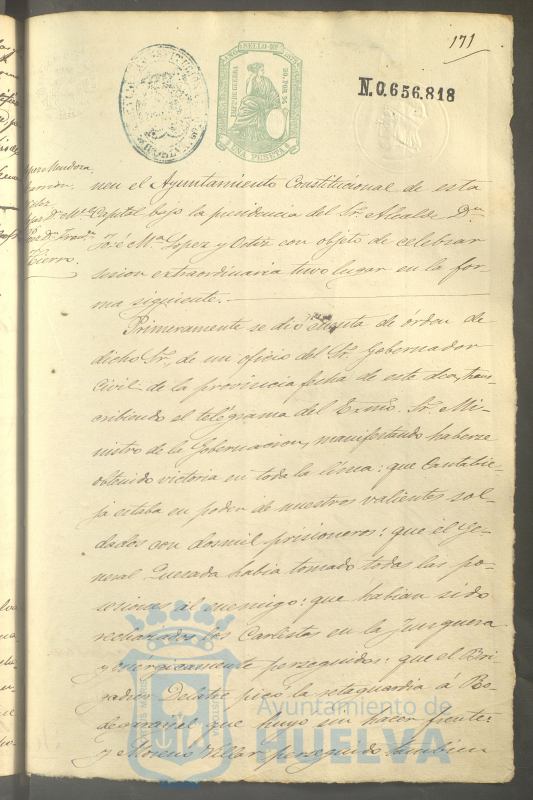 171
N.0.656.818
UNA PESETA
nen el Ayuntamiento Constitucional de esta
Capital bajo la presidencia del Sr. Alcalde Dn
José Ma Lopez y Ortiz con objeto de celebrar
sesion extraordinaria tuvo lugar en la for-
ma siguiente.
Primeramente se dió cuenta de órden de
dicho Sr, de un oficio del Sr. Gobernador
Civil de la provincia fecha de este dia, trans-
cribiendo el telégrama del Exmo. Sr. Mi-
nistro de la Gobernacion, manifestando haberse
obtenido victoria en toda la línea: que Cantabie-
ja estaba en poder de nuestros valientes sol-
dados con dosmil prisioneros: que el Ge-
neral Quesada habia tomado todas las po-
sesiones al enemigo: que habian sido
rechazados los Carlistas en la Junquera
y enérgicamente perseguidos: que el Bri-
gadier Delatre picó la retaguardia á
que huyó sin hacer frente:
y Moreno Villar perseguido tambien
Mendoza
Hierro
Ayuntamiento de
HUELVA